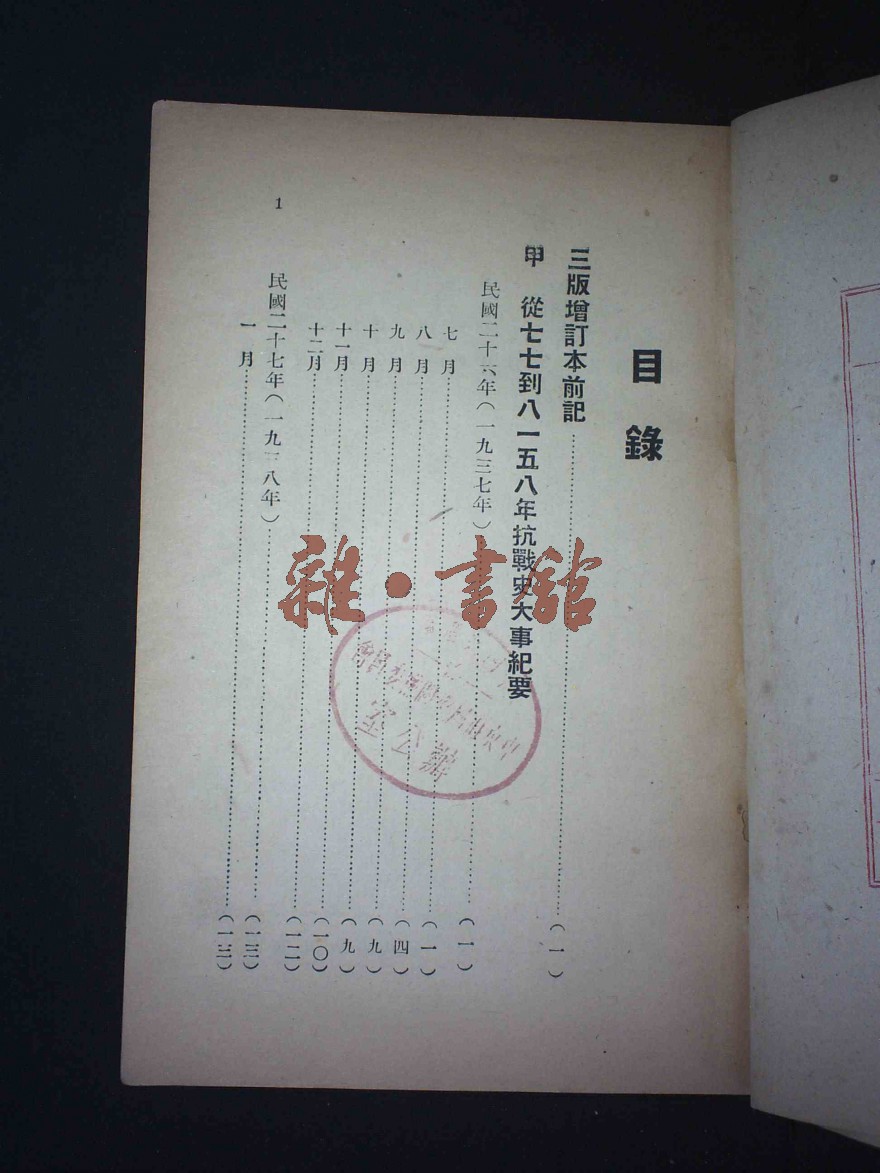 目錄
三版增訂本前記……(一)
甲 從七七到八一五八年抗戰史大事紀要
民國二十六年(一九三七年)……(一)
七月……(一)
八月……(四)
九月……(九)
十月……(九)
十一月……(一〇)
十二月……(一二)
民國二十七年(一九三八年)……(一三)
一月……(一三)
1
雜·書館
辦公室